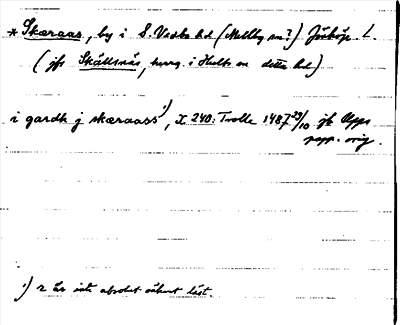 * Skæraas, by i S. Vedbo hd (Mellby sn?) Jönköp. L.
(jfr Skällnäs, herrg. i Hults sn detta hd)
i gardh j skæraass¹), X 240: Trolle 1487 23/10 jfr Upps
papp. orig.
¹) r är icke absolut säkert läst.